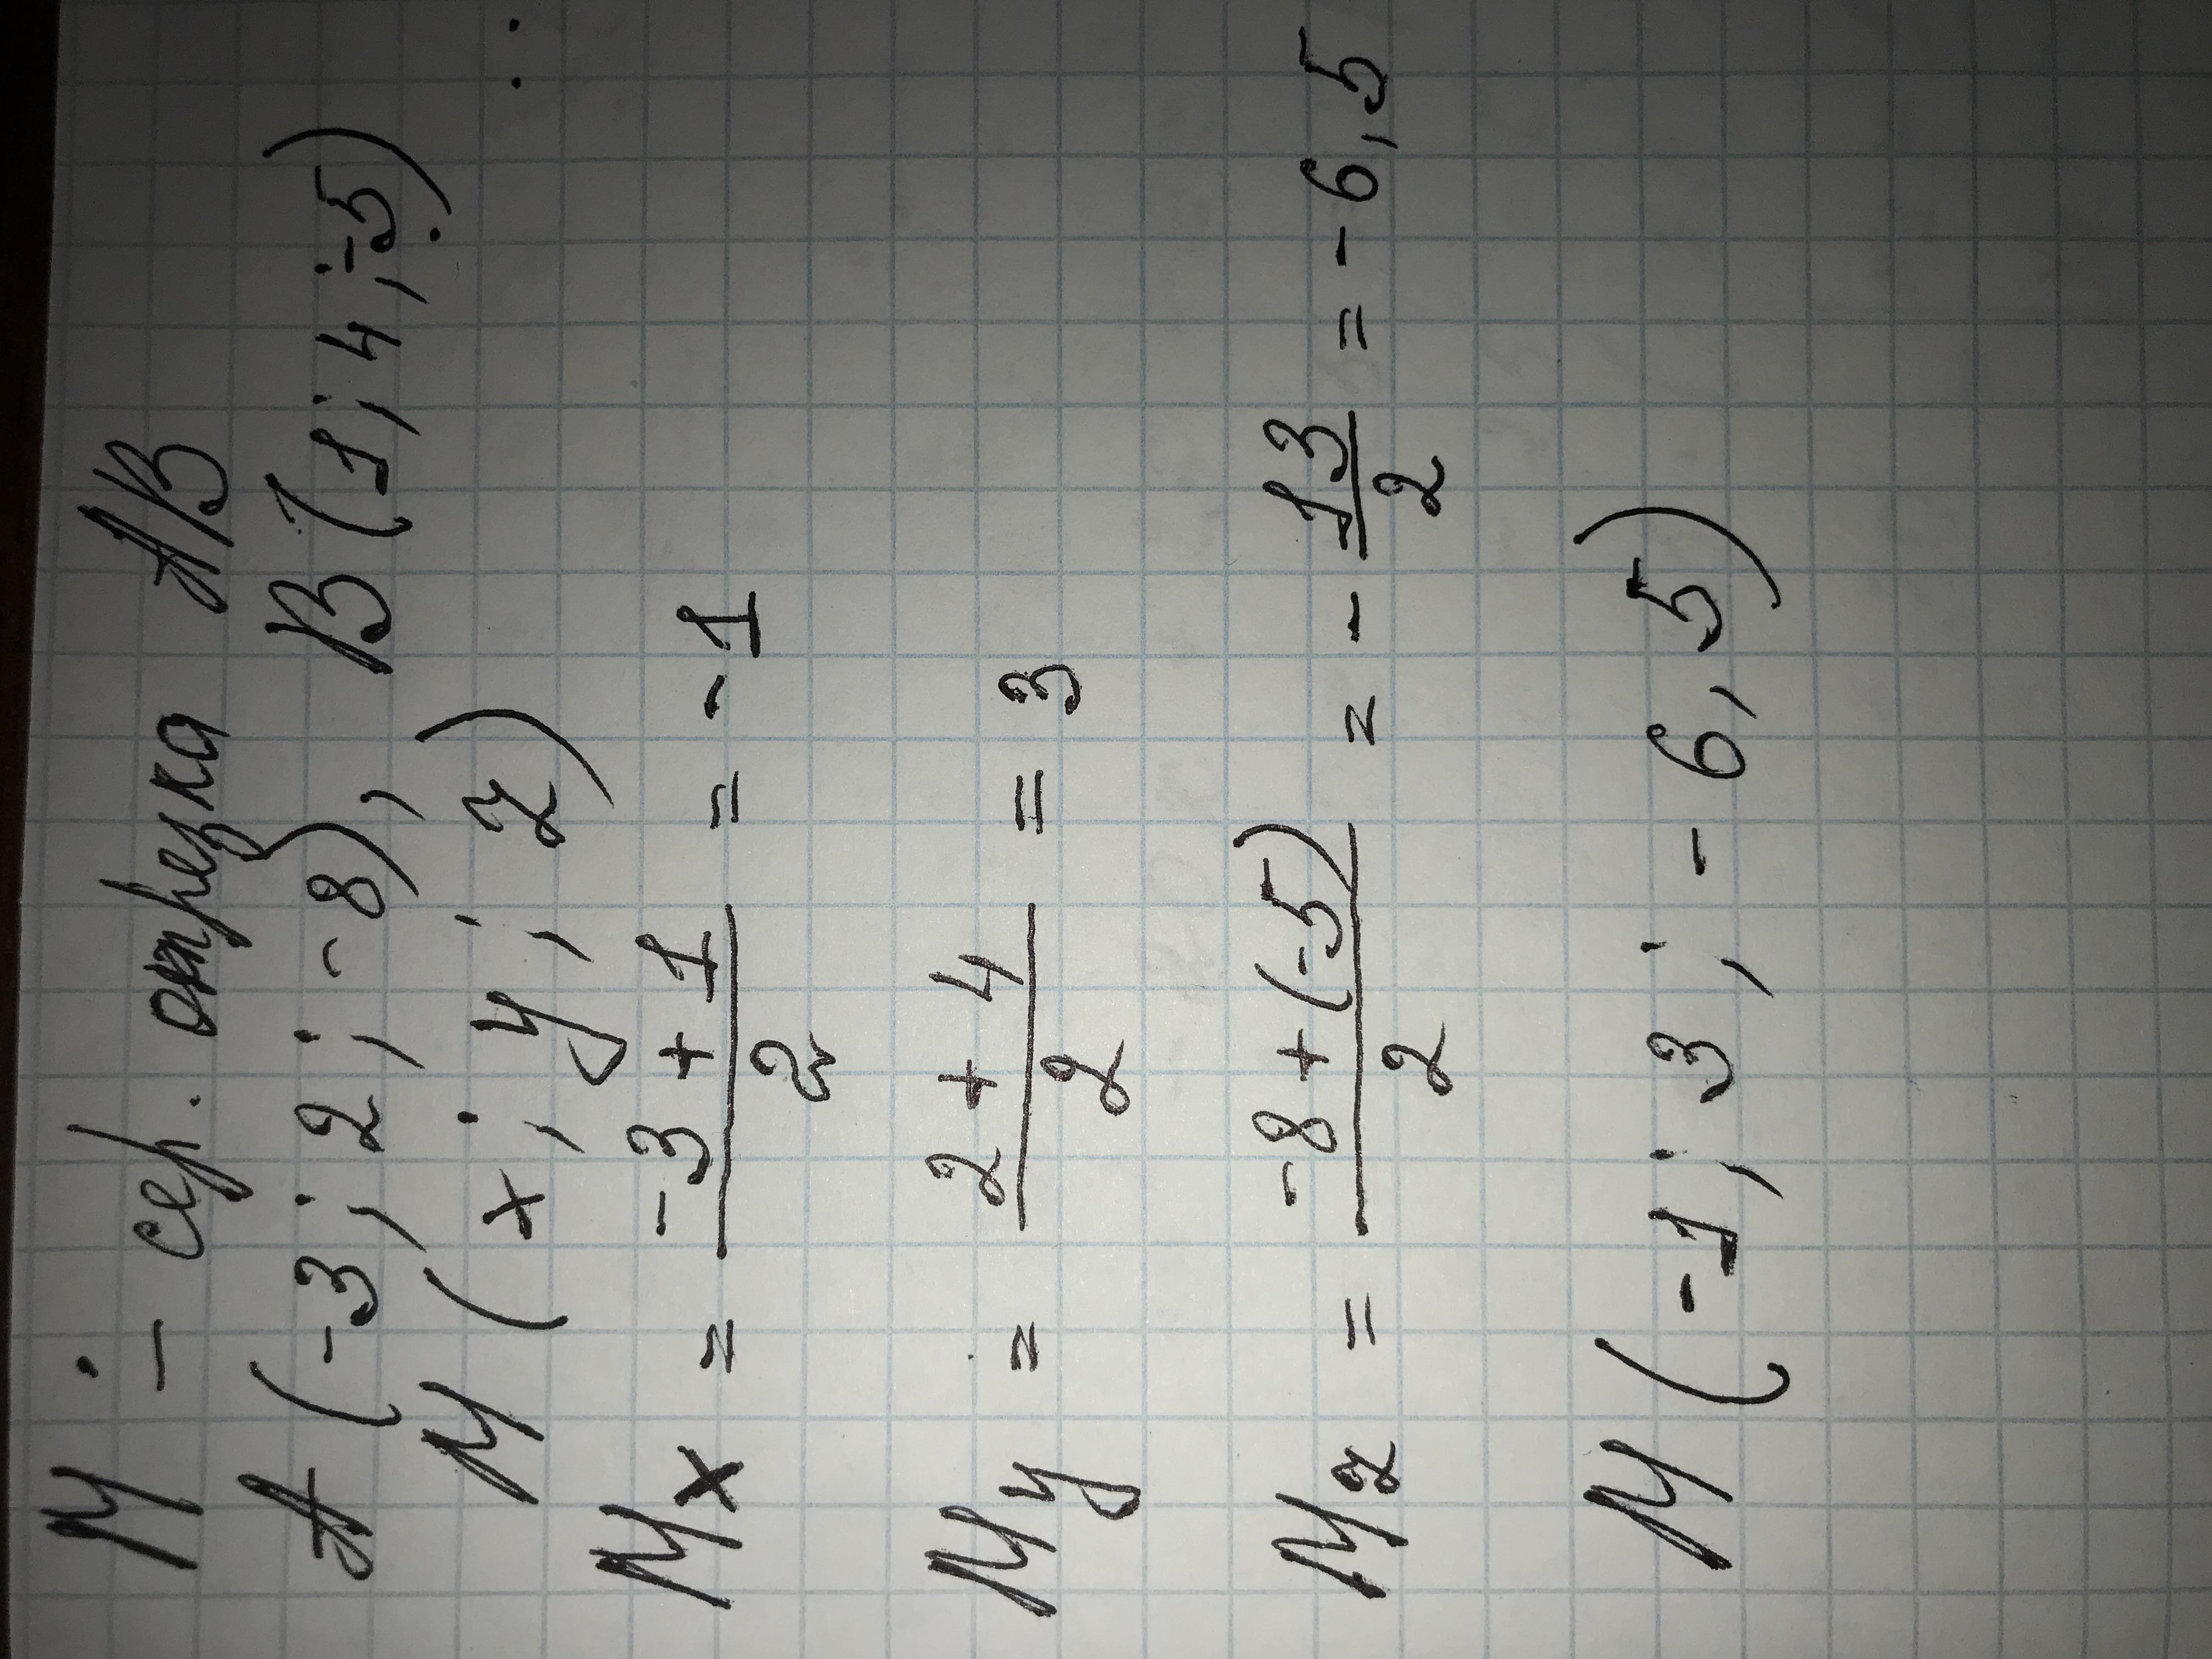 M - сер. отрезка AB
A (-3; 2; -8), B (1; 4; -5)
M (x; y; z)
Mx = \frac{-3 + 1}{2} = -1
My = \frac{2 + 4}{2} = 3
Mz = \frac{-8 + (-5)}{2} = -\frac{13}{2} = -6,5
M (-1; 3; -6,5)